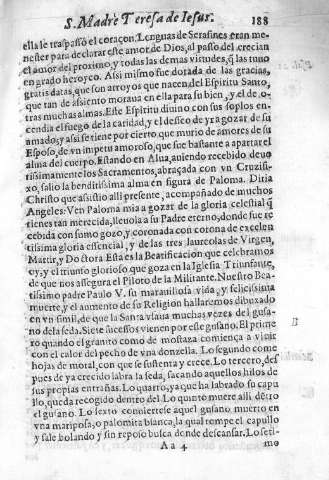 S. Madre Teresa de Iesus. 188
ella le traspassò el coraçon. Lenguas de Serafines eran me-
nester para declarar este amor de Dios, al passo del crecian
el amor del proximo, y todas las demas virtudes, q̃ las tuuo
en grado heroyco. Assi mismo fue dotada de las gracias,
gratis datas, que son arroyos que nacen del Espiritu Santo,
que tan de assiento moraua en ella para su bien, y el de o-
tras muchas almas. Este Espiritu diuino con sus soplos en-
cendia el fuego de la caridad, y el desseo de yr a gozar de su
amado; y assi se tiene por cierto que murio de amores de su
Esposo, de vn impetu amoroso, que fue bastante a apartar el
alma del cuerpo. Estando en Alua, auiendo recebido deuo
tissimamente los Sacramentos, abraçada con vn Cruzifi-
xo, salio la benditissima alma en figura de Paloma. Diria
Christo que assistio alli presente, acompañado de muchos
Angeles: Ven Paloma mia a gozar de la gloria celestial q̃
tienes tan merecida, lleuola a su Padre eterno, donde fue re
cebida con sumo gozo, y coronada con corona de excelen
tissima gloria essencial, y de las tres laureolas de Virgen,
Martir, y Doctora Essa es la Beatificacion que celebramos
oy, y el triunfo glorioso que goza en la Iglesia Triunfante,
de que nos assegura el Piloto de la Militante. Nuestro Bea-
tissimo padre Paulo V. su marauillosa vida, y felicissima
muerte, y el aumento de su Religion hallaremos dibuxado
en vn simil, de que la Santa vsaua muchas vezes del gusa-
no de la seda. Siete sucessos vienen por este gusano. El prime
B
ro quando el granito como de mostaza comiença a viuir
con el calor del pecho de vna donzella. Lo segundo come
hojas de moral, con que se sustenta y crece. Lo tercero, des
pues de ya crecido labra la seda, sacando aquellos hilos de
sus propias entrañas. Lo quarto, ya que ha labrado su capu
llo, queda recogido dentro del Lo quinto muere alli dẽtro
el gusano. Lo sexto conuiertese aquel gusano muerto en
vna mariposa, o palomita blanca, la qual rompe el capullo
y sale bolando y sin reposo busca donde descansar. Lo seti-
Aa 4 mo